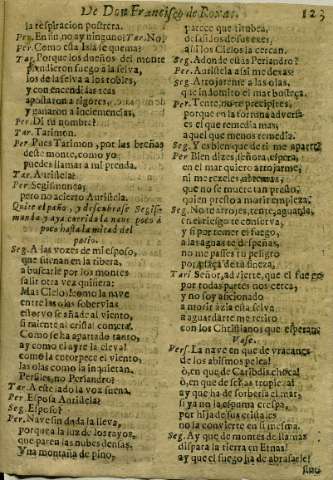 De Don Francisco de Roxas. 123
la respiracion postrera.
Per. En fin, no ay ninguno? Tar. No?
Per. Como esta Isla se quema?
Tar. Porque los dueños del monte
prendieron fuego a la selva,
los de la selva a los robles,
y con encendidas teas
apostaron a rigores,
y ganaron a inclemencias,
Per. Di tu nombre?
Tar. Tarimon.
Per. Pues Tarimon, por las breñas
deste monte, como yo
puedes llamar a mi prenda.
Tar. Auristela?
Per. Segismonea;
pero no acierto Auristela.
Quite el paño, y descubrase Segismunda
y aya corrida la nave poco a
poco hasta la mitad del
patio.
Seg. A las vozes de mi esposo,
que suenan en la ribera,
a buscarle por los montes
salir otra vez quisiera:
Mas Cielos! como la nave
entre las olas sobervias
estorvo se añade al viento,
si miente al cristal cometa.
Como se ha apartado tanto,
ay como el ayre la eleva!
como la entorpece el viento;
las olas como la inquietan.
Persiles, no Periandro?
Tar. A este lado la voz suena.
Per. Esposa Auristela?
Seg. Esposo?
Per. Nave sin duda la lleva,
porque a la luz de los rayos,
que paren las nubes densas,
Vna montaña de pino,
y parece que titubea,
ò, si assi los deseos,
assi los Cielos la cercan.
Seg. Adonde estàs Periandro?
Per. Auristela assi me dexas?
Seg. Arrojarente a las olas,
que indomito el mar bosteza.
Per. Tente, no te precipites,
porque en la fortuna adversa
es el que remedia mas,
aquel que menos remedia.
Seg. Y es bien que de ti me aparte
Per. Bien dizes, señora, espera,
en el mar quiero arrojarme,
ni me creals
que no se muere tan presto,
quien presto a morir empieza.
Seg. No te arrojes, tente, aguarda,
en el riesgo te conserva,
y si por temer el fuego,
a las aguas te despeñas,
no me passes tu peligro
por plaça de fineza.
Tari Señor, advierte, que el fuego
por todas partes nos cerca,
y no soy aficionado
a morir
a aguardarte me retiro
con los Christianos que esperan.
Vase.
Pers. La nave en que de vracanes
de los abismos pelea!
ò, en que de Caribdis choca!
ò, en que de señas tropieça!
ay que ha de sorberla el mar,
si ya no la espuma crespa,
por hija de sus cristales
no la convierte en si mesma.
Seg. Ay que de montes de llamas
dispara la tierra en Etnas!
ay que el fuego ha de abrasarle!
sino